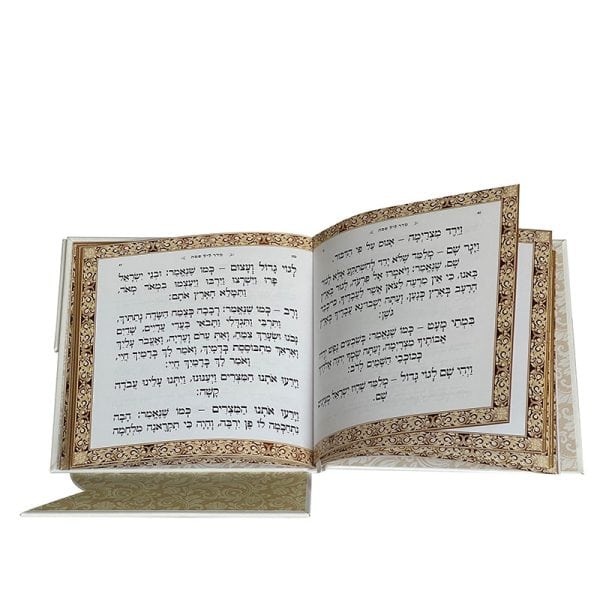 סדר ליל פסח
וַיֵּרֶד מִצְרַיְמָה – אָנוּס עַל פִּי הַדִּבּוּר.
וַיָּגָר שָׁם – מְלַמֵּד שֶׁלֹּא יָרַד לְהִשְׁתַּקֵּעַ אֶלָּא לָגוּר
שָׁם, שֶׁנֶּאֱמַר: וַיֹּאמְרוּ אֶל פַּרְעֹה, לָגוּר בָּאָרֶץ
בָּאנוּ, כִּי אֵין מִרְעֶה לַצֹּאן אֲשֶׁר לַעֲבָדֶיךָ, כִּי כָבֵד
הָרָעָב בְּאֶרֶץ כְּנָעַן, וְעַתָּה יֵשְׁבוּ נָא עֲבָדֶיךָ בְּאֶרֶץ
גֹּשֶׁן.
בִּמְתֵי מְעָט – כְּמוֹ שֶׁנֶּאֱמַר: בְּשִׁבְעִים נֶפֶשׁ יָרְדוּ
אֲבוֹתֶיךָ מִצְרָיְמָה, וְעַתָּה שָׂמְךָ יְיָ אֱלֹהֶיךָ
כְּכוֹכְבֵי הַשָּׁמַיִם לָרֹב.
וַיְהִי שָׁם לְגוֹי גָּדוֹל – מְלַמֵּד שֶׁהָיוּ יִשְׂרָאֵל מְצֻיָּנִים
שָׁם.
סדר ליל פסח
לְגוֹי גָּדוֹל וְעָצוּם – כְּמוֹ שֶׁנֶּאֱמַר: וּבְנֵי יִשְׂרָאֵל
פָּרוּ וַיִּשְׁרְצוּ וַיִּרְבּוּ וַיַּעַצְמוּ בִּמְאֹד מְאֹד,
וַתִּמָּלֵא הָאָרֶץ אֹתָם:
וָרָב – כְּמוֹ שֶׁנֶּאֱמַר: רְבָבָה כְּצֶמַח הַשָּׂדֶה נְתַתִּיךְ,
וַתִּרְבִּי וַתִּגְדְּלִי וַתָּבֹאִי בַּעֲדִי עֲדָיִים, שָׁדַיִם
נָכֹנוּ וּשְׂעָרֵךְ צִמֵּחַ, וְאַתְּ עֵרֹם וְעֶרְיָה, וָאֶעֱבֹר עָלַיִךְ
וָאֶרְאֵךְ מִתְבּוֹסֶסֶת בְּדָמָיִךְ, וָאֹמַר לָךְ בְּדָמַיִךְ חֲיִי,
וָאֹמַר לָךְ בְּדָמַיִךְ חֲיִי:
וַיָּרֵעוּ אֹתָנוּ הַמִּצְרִים וַיְעַנּוּנוּ, וַיִּתְּנוּ עָלֵינוּ עֲבֹדָה
קָשָׁה:
וַיָּרֵעוּ אֹתָנוּ הַמִּצְרִים – כְּמוֹ שֶׁנֶּאֱמַר: הָבָה
נִתְחַכְּמָה לוֹ פֶּן יִרְבֶּה, וְהָיָה כִּי תִקְרֶאנָה מִלְחָמָה